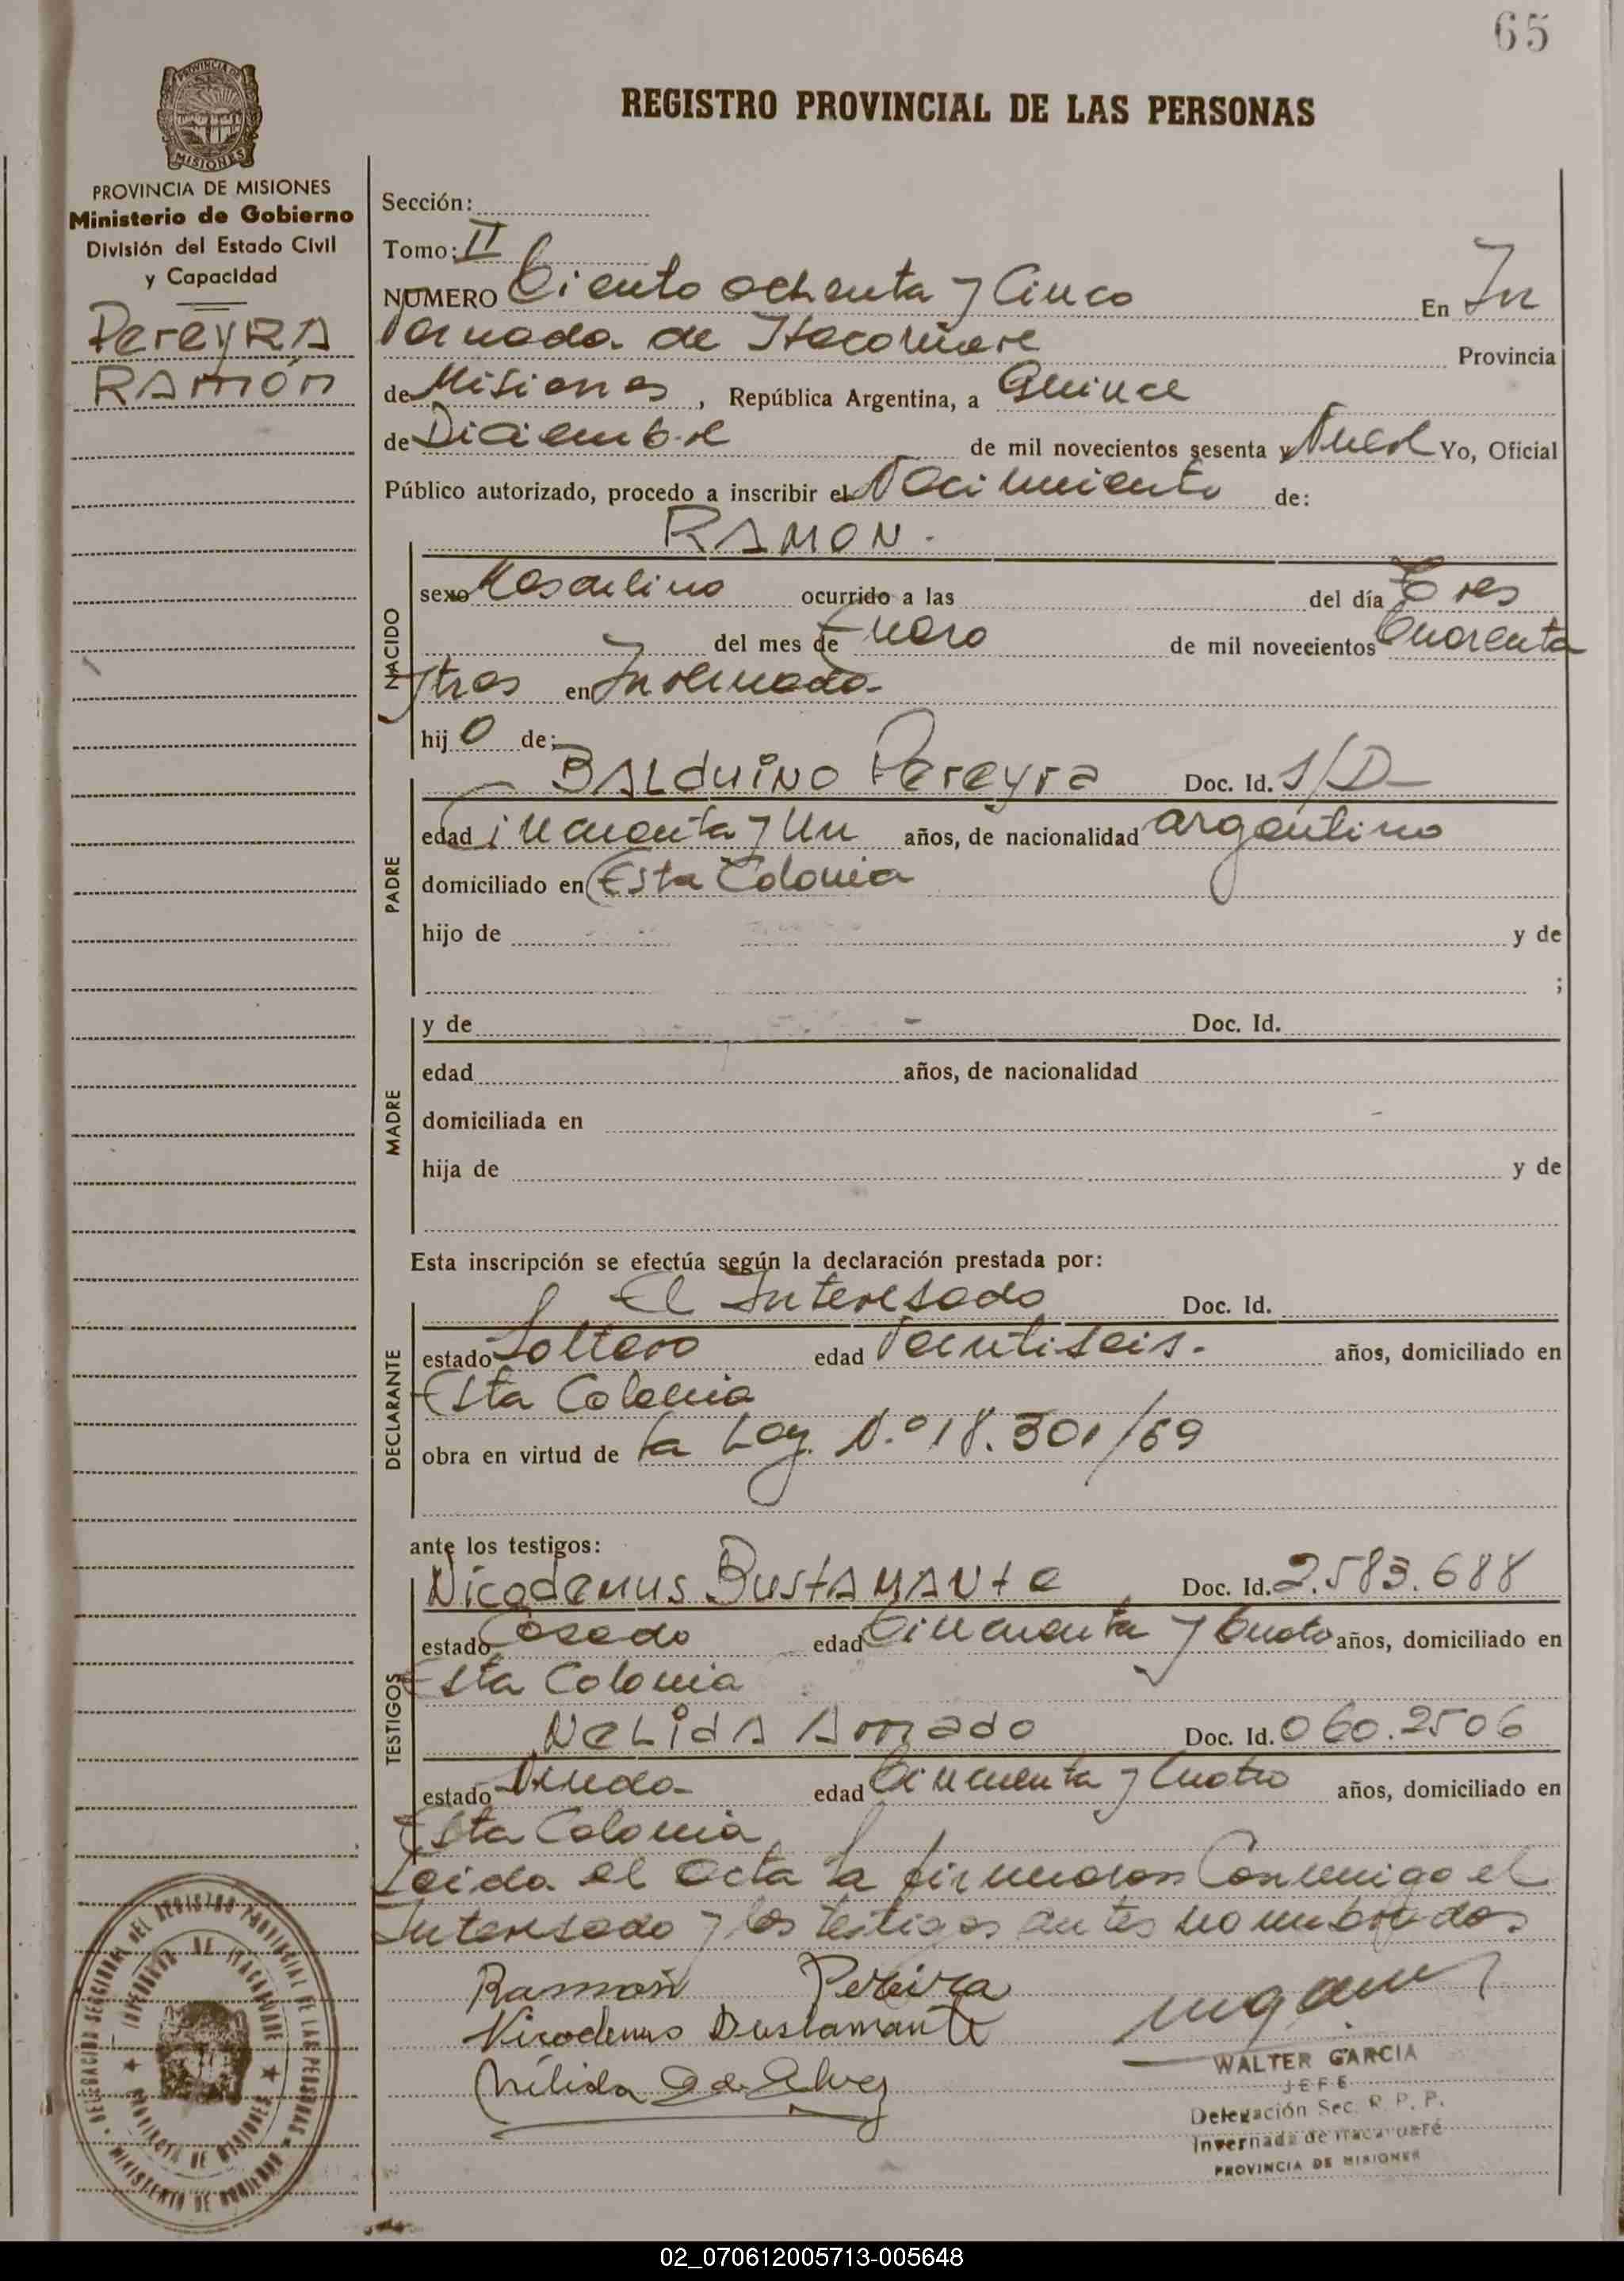 65
PROVINCIA DE
MISIONES
REGISTRO PROVINCIAL DE LAS PERSONAS
PROVINCIA DE MISIONES
Ministerio de Gobierno
División del Estado Civil
y Capacidad
Pereyra
Ramón
Sección:
Tomo: II
NUMERO Ciento ochenta y Cinco En In
vernada de Itacaruare Provincia
de Misiones, República Argentina, a Quince
de Diciembre de mil novecientos sesenta y Nueve Yo, Oficial
Público autorizado, procedo a inscribir el Nacimiento de:
RAMON.
NACIDO
sexo Masculino ocurrido a las del día Tres
del mes de Enero de mil novecientos Cuarenta
y tres en Invernada
hijo de:
PADRE
BALduiNO Pereyra Doc. Id. S/D
edad Cincuenta y Un años, de nacionalidad argentino
domiciliado en Esta Colonia
hijo de y de
;
MADRE
y de Doc. Id.
edad años, de nacionalidad
domiciliada en
hija de y de
Esta inscripción se efectúa según la declaración prestada por:
DECLARANTE
El Interesado Doc. Id.
estado Soltero edad Veintiseis. años, domiciliado en
Esta Colonia
obra en virtud de la Ley N.º 18.301/69
ante los testigos:
TESTIGOS
Nicodemus Bustamante Doc. Id. 2.583.688
estado Casado edad Cincuenta y Cuatro años, domiciliado en
Esta Colonia
Nelida Amado Doc. Id. 060.2506
estado Viuda edad Cincuenta y Cuatro años, domiciliado en
Esta Colonia
Leida el acta la firmaron Conmigo el
Interesado y los testigos antes nombrados
Ramón Pereira
Nicodemus Bustamante
Nélida de Alvez
WALTER GARCIA
JEFE
Delegación Sec. R. P. P.
Invernada de Itacaruaré
PROVINCIA DE MISIONES
DELEGACION SECCIONAL DEL REGISTRO PROVINCIAL DE LAS PERSONAS
MINISTERIO DE GOBIERNO
INVERNADA DE ITACARUARE
PROVINCIA DE MISIONES
02_070612005713-005648